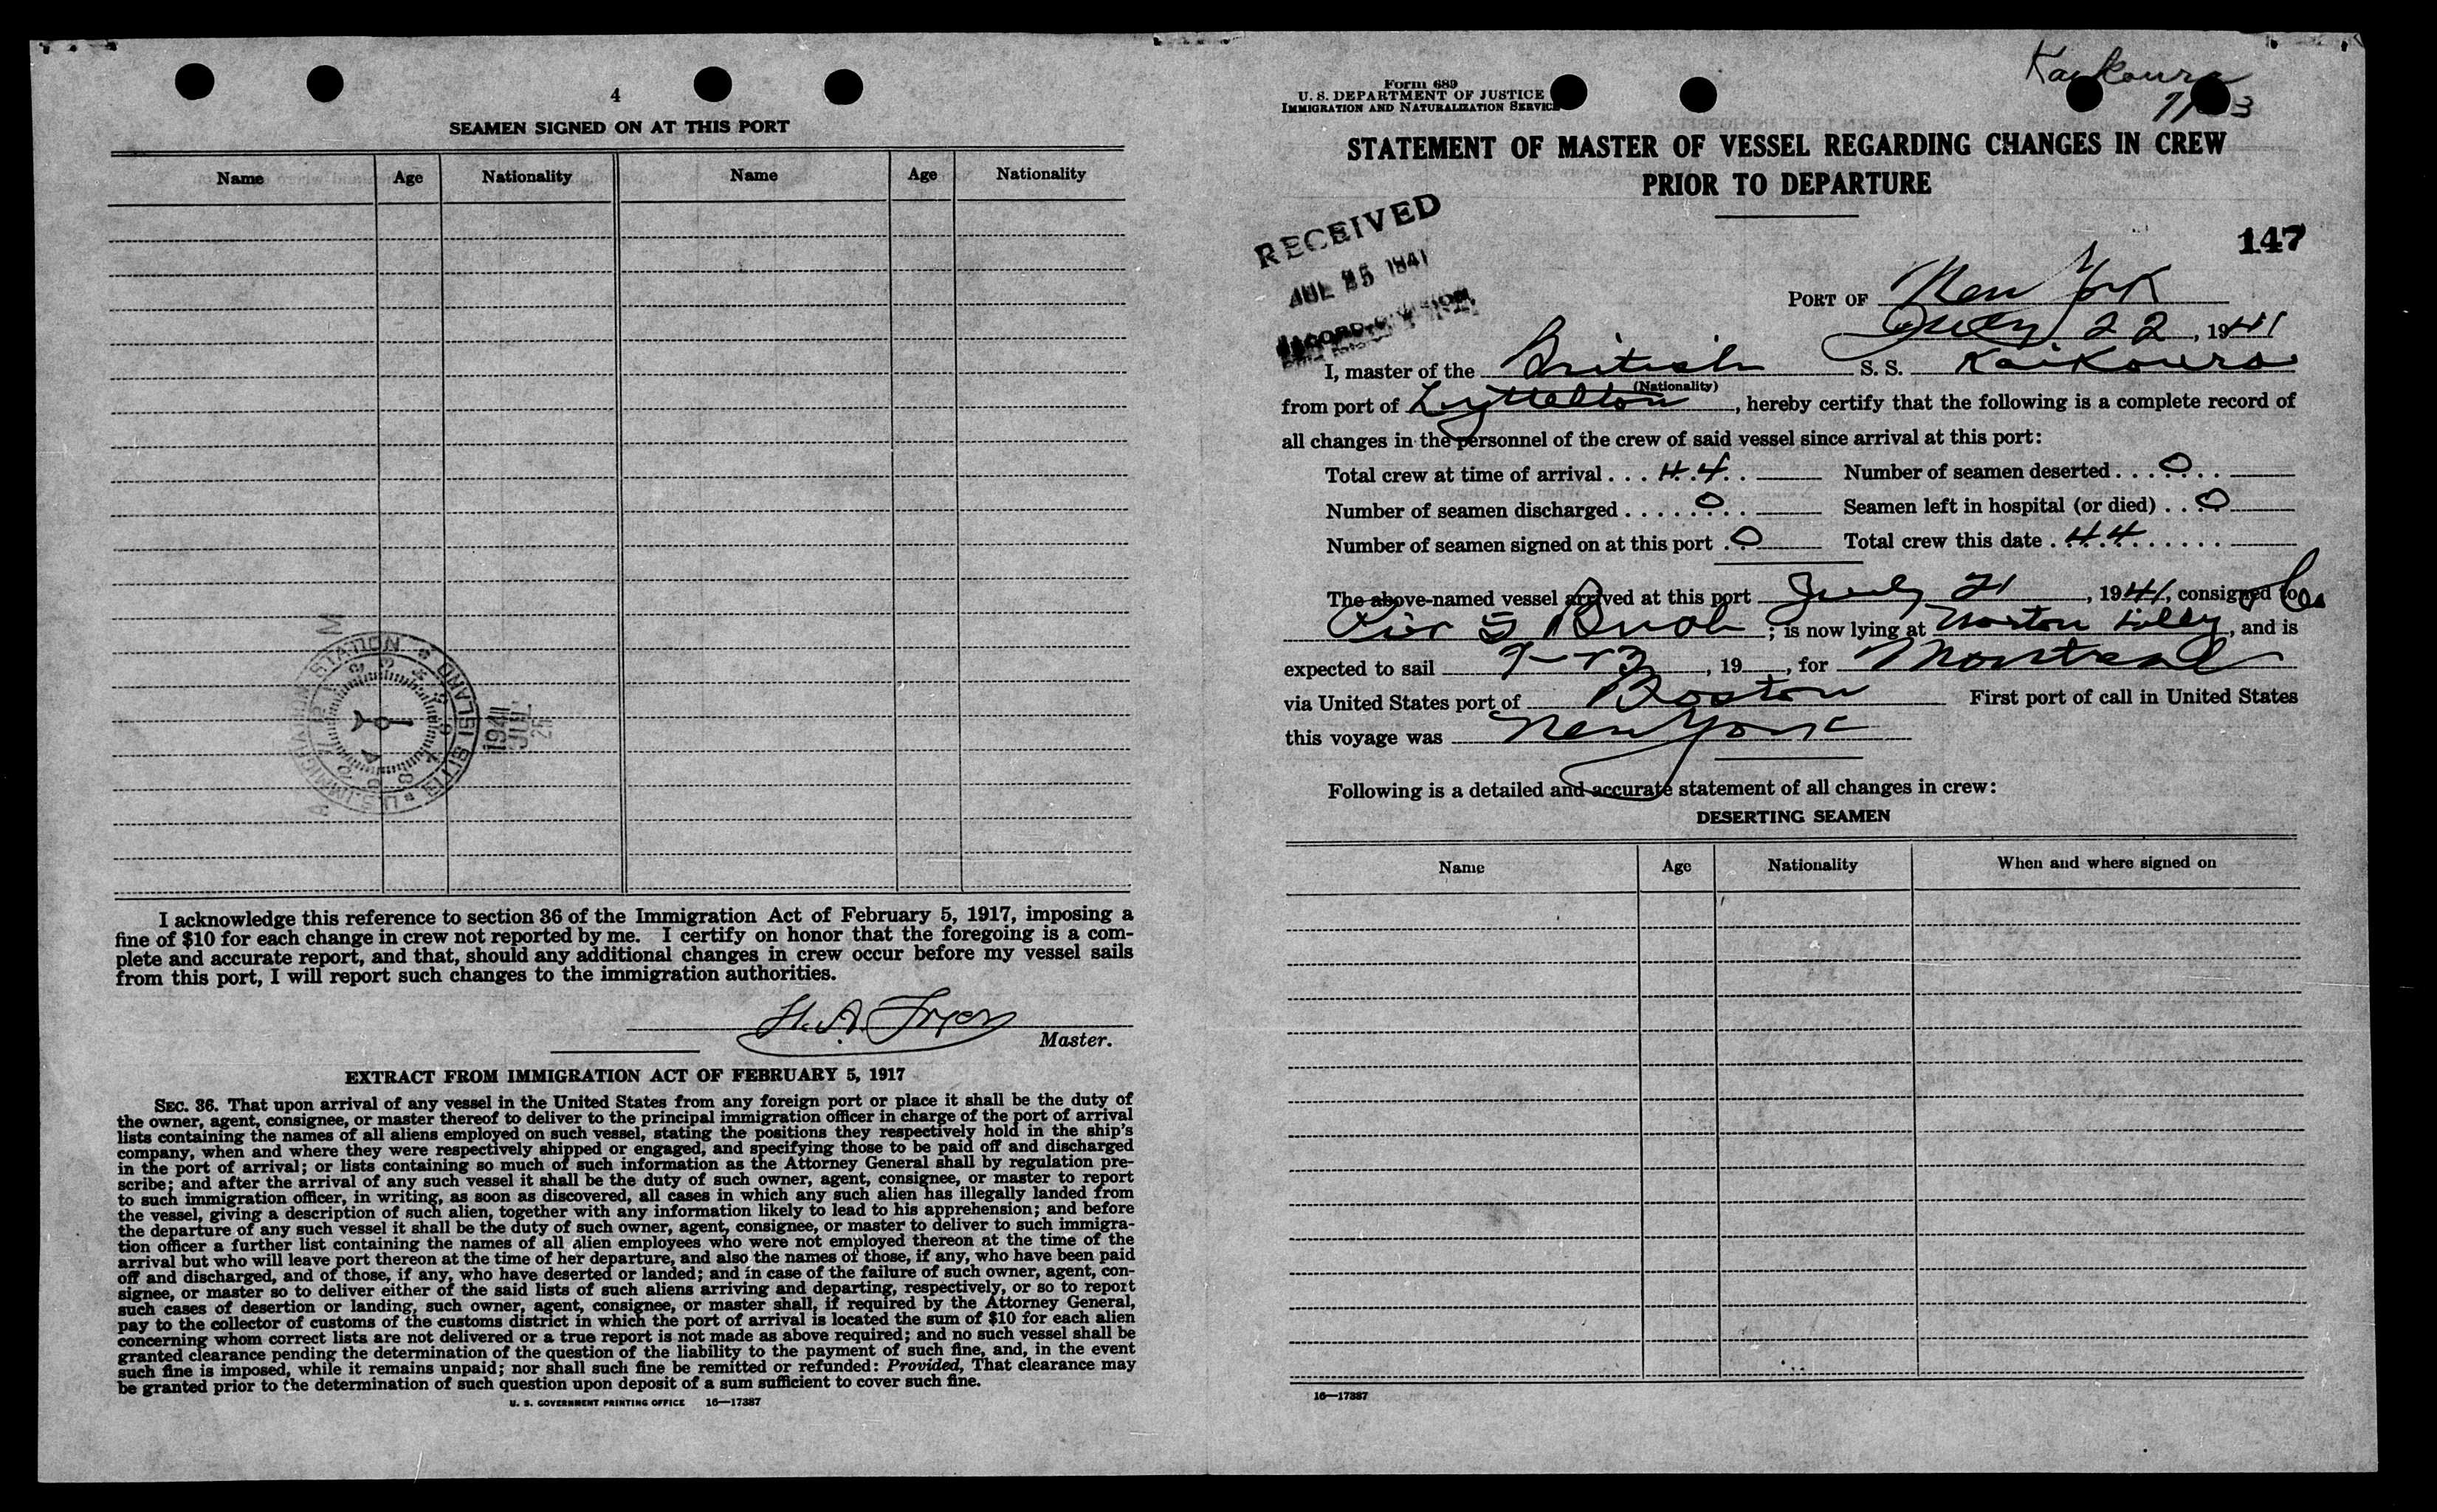 4
SEAMEN SIGNED ON AT THIS PORT
Name Age Nationality Name Age Nationality
U.S. IMMIGRATION STATION * ELLIS ISLAND *
1941 JUL 25
I acknowledge this reference to section 36 of the Immigration Act of February 5, 1917, imposing a
fine of $10 for each change in crew not reported by me. I certify on honor that the foregoing is a com-
plete and accurate report, and that, should any additional changes in crew occur before my vessel sails
from this port, I will report such changes to the immigration authorities.
H. A. Fryer
Master.
EXTRACT FROM IMMIGRATION ACT OF FEBRUARY 5, 1917
SEC. 36. That upon arrival of any vessel in the United States from any foreign port or place it shall be the duty of
the owner, agent, consignee, or master thereof to deliver to the principal immigration officer in charge of the port of arrival
lists containing the names of all aliens employed on such vessel, stating the positions they respectively hold in the ship's
company, when and where they were respectively shipped or engaged, and specifying those to be paid off and discharged
in the port of arrival; or lists containing so much of such information as the Attorney General shall by regulation pre-
scribe; and after the arrival of any such vessel it shall be the duty of such owner, agent, consignee, or master to report
to such immigration officer, in writing, as soon as discovered, all cases in which any such alien has illegally landed from
the vessel, giving a description of such alien, together with any information likely to lead to his apprehension; and before
the departure of any such vessel it shall be the duty of such owner, agent, consignee, or master to deliver to such immigra-
tion officer a further list containing the names of all alien employees who were not employed thereon at the time of the
arrival but who will leave port thereon at the time of her departure, and also the names of those, if any, who have been paid
off and discharged, and of those, if any, who have deserted or landed; and in case of the failure of such owner, agent, con-
signee, or master so to deliver either of the said lists of such aliens arriving and departing, respectively, or so to report
such cases of desertion or landing, such owner, agent, consignee, or master shall, if required by the Attorney General,
pay to the collector of customs of the customs district in which the port of arrival is located the sum of $10 for each alien
concerning whom correct lists are not delivered or a true report is not made as above required; and no such vessel shall be
granted clearance pending the determination of the question of the liability to the payment of such fine, and, in the event
such fine is imposed, while it remains unpaid; nor shall such fine be remitted or refunded: Provided, That clearance may
be granted prior to the determination of such question upon deposit of a sum sufficient to cover such fine.
U. S. GOVERNMENT PRINTING OFFICE 16—17387
Form 689
U. S. DEPARTMENT OF JUSTICE
IMMIGRATION AND NATURALIZATION SERVICE
Kaikoura
STATEMENT OF MASTER OF VESSEL REGARDING CHANGES IN CREW
PRIOR TO DEPARTURE
RECEIVED
JUL 25 1941
147
PORT OF New York
July 22, 1941
I, master of the British S. S. Kaikoura
(Nationality)
from port of Lyttelton, hereby certify that the following is a complete record of
all changes in the personnel of the crew of said vessel since arrival at this port:
Total crew at time of arrival . . . 44 . . Number of seamen deserted . . . 0 . .
Number of seamen discharged . . . . . 0 . . Seamen left in hospital (or died) . . 0
Number of seamen signed on at this port . 0 Total crew this date . 44 . . . . . .
The above-named vessel arrived at this port July 21, 1941, consigned to Co
Pier 5 Bush; is now lying at Norton Lilly, and is
expected to sail 7-23, 19 , for Montreal
via United States port of Boston First port of call in United States
this voyage was New York
Following is a detailed and accurate statement of all changes in crew:
DESERTING SEAMEN
Name Age Nationality When and where signed on
16—17387